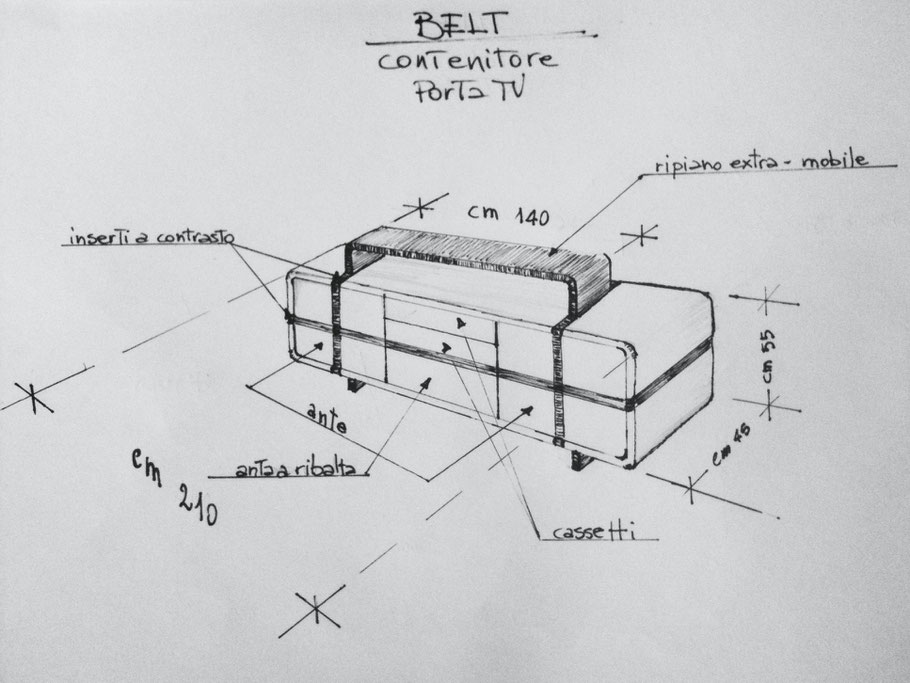 BELT
contenitore
Porta TV
ripiano extra-mobile
cm 140
inserti a contrasto
cm 55
cm 45
ante
anta a ribalta
cm 210
cassetti